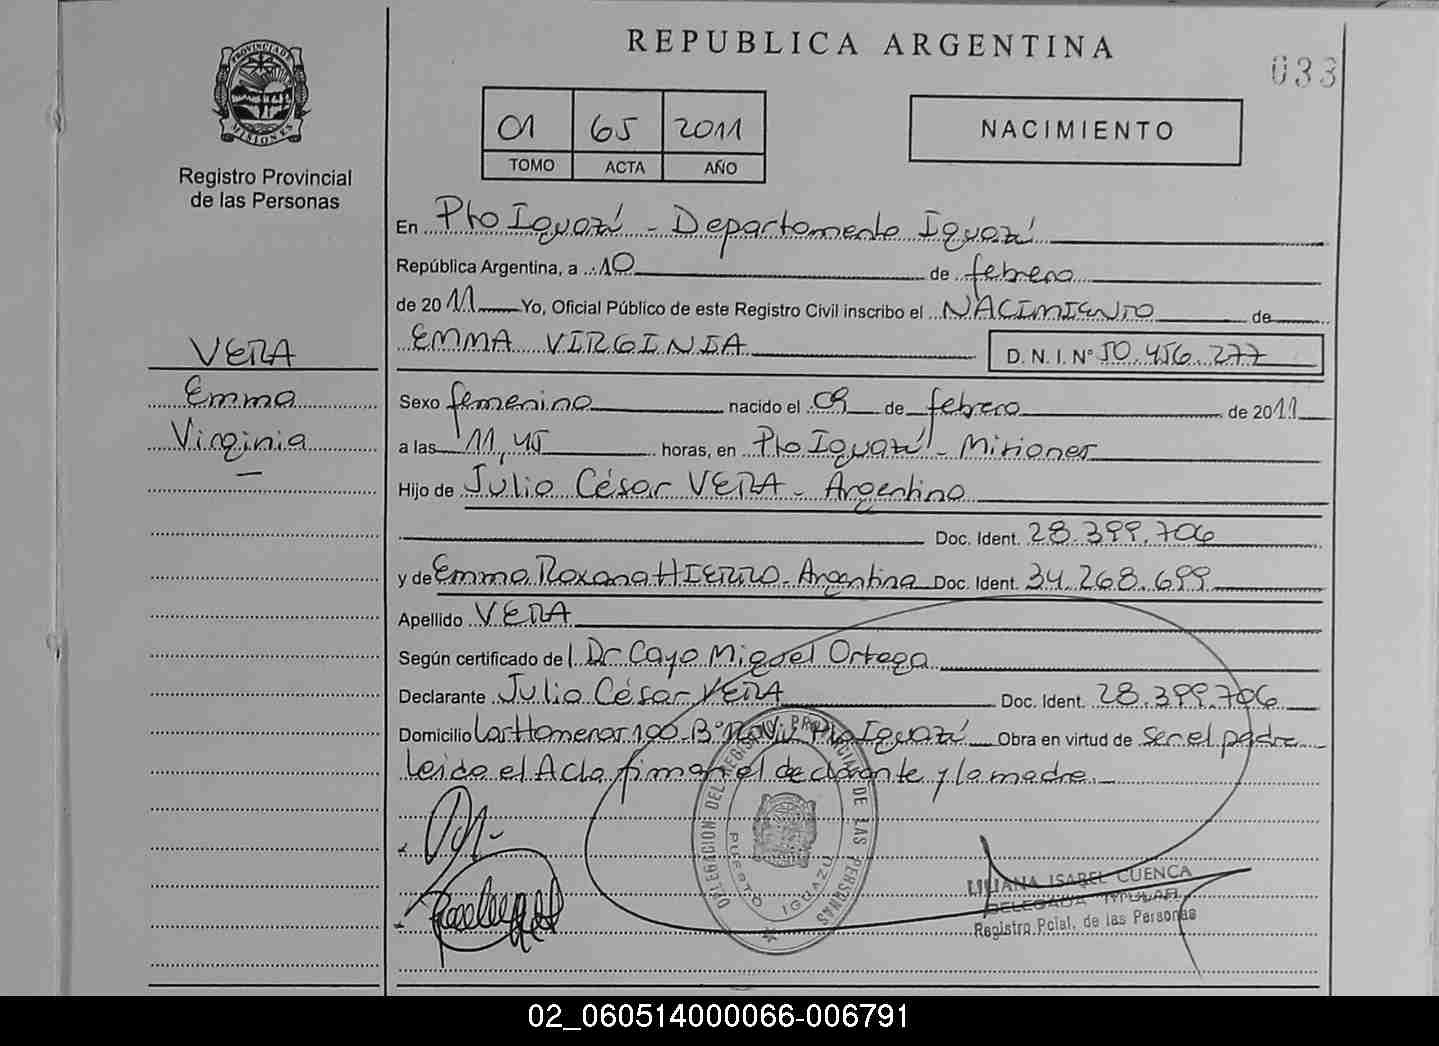 REPUBLICA ARGENTINA
033
PROVINCIA DE MISIONES
Registro Provincial
de las Personas
01 65 2011
TOMO ACTA AÑO
NACIMIENTO
VERA
Emma
Virginia
En Pto Iguazú - Departamento Iguazú
República Argentina, a 10 de febrero
de 2011 Yo, Oficial Público de este Registro Civil inscribo el NACIMIENTO de
EMMA VIRGINIA D. N. I. N° 50.456.277
Sexo femenino nacido el 09 de febrero de 2011
a las 11,45 horas, en Pto Iguazú - Misiones
Hijo de Julio César VERA - Argentino
Doc. Ident. 28.399.706
y de Emma Roxana HIERRO - Argentina Doc. Ident. 34.268.699
Apellido VERA
Según certificado del Dr Cayo Miguel Ortega
Declarante Julio César VERA Doc. Ident. 28.399.706
Domicilio Las Homenas 190 - B° Pto Iguazú Obra en virtud de ser el padre
leido el Acta firman el declarante y la madre.
DELEGACION DEL REGISTRO PROVINCIAL DE LAS PERSONAS
PUERTO IGUAZU
LILIANA ISABEL CUENCA
DELEGADA TITULAR
Registro Pcial. de las Personas
02_060514000066-006791